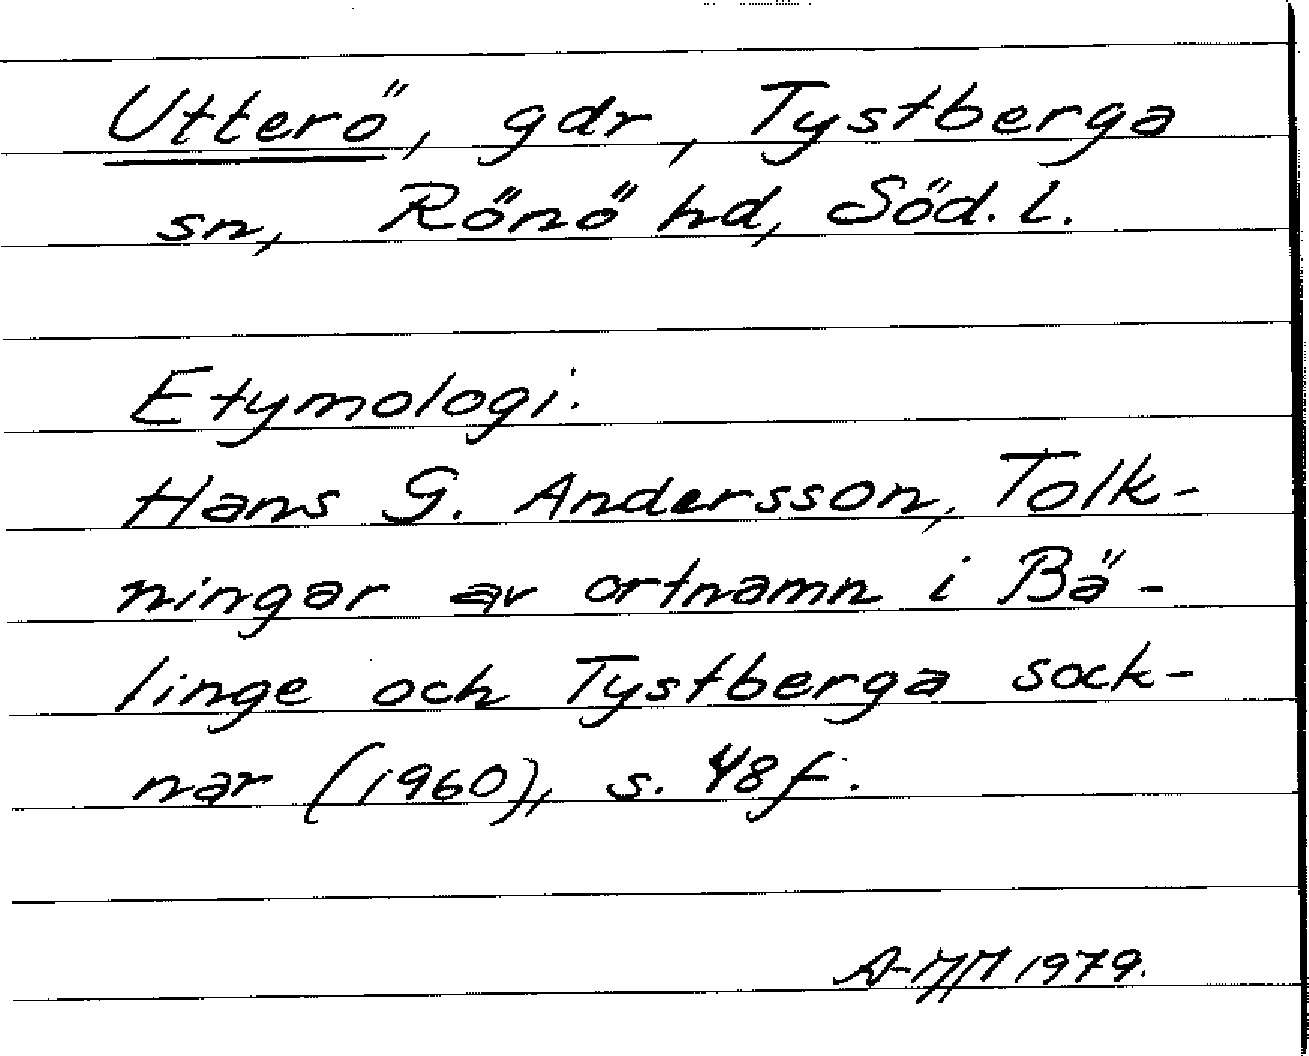 Utterö, gdr, Tystberga
sn, Rönö hd, Söd. l.
Etymologi:
Hans G. Andersson, Tolk-
ningar av ortnamn i Bä-
linge och Tystberga sock-
nar (1960), s. 48 f.
1979.